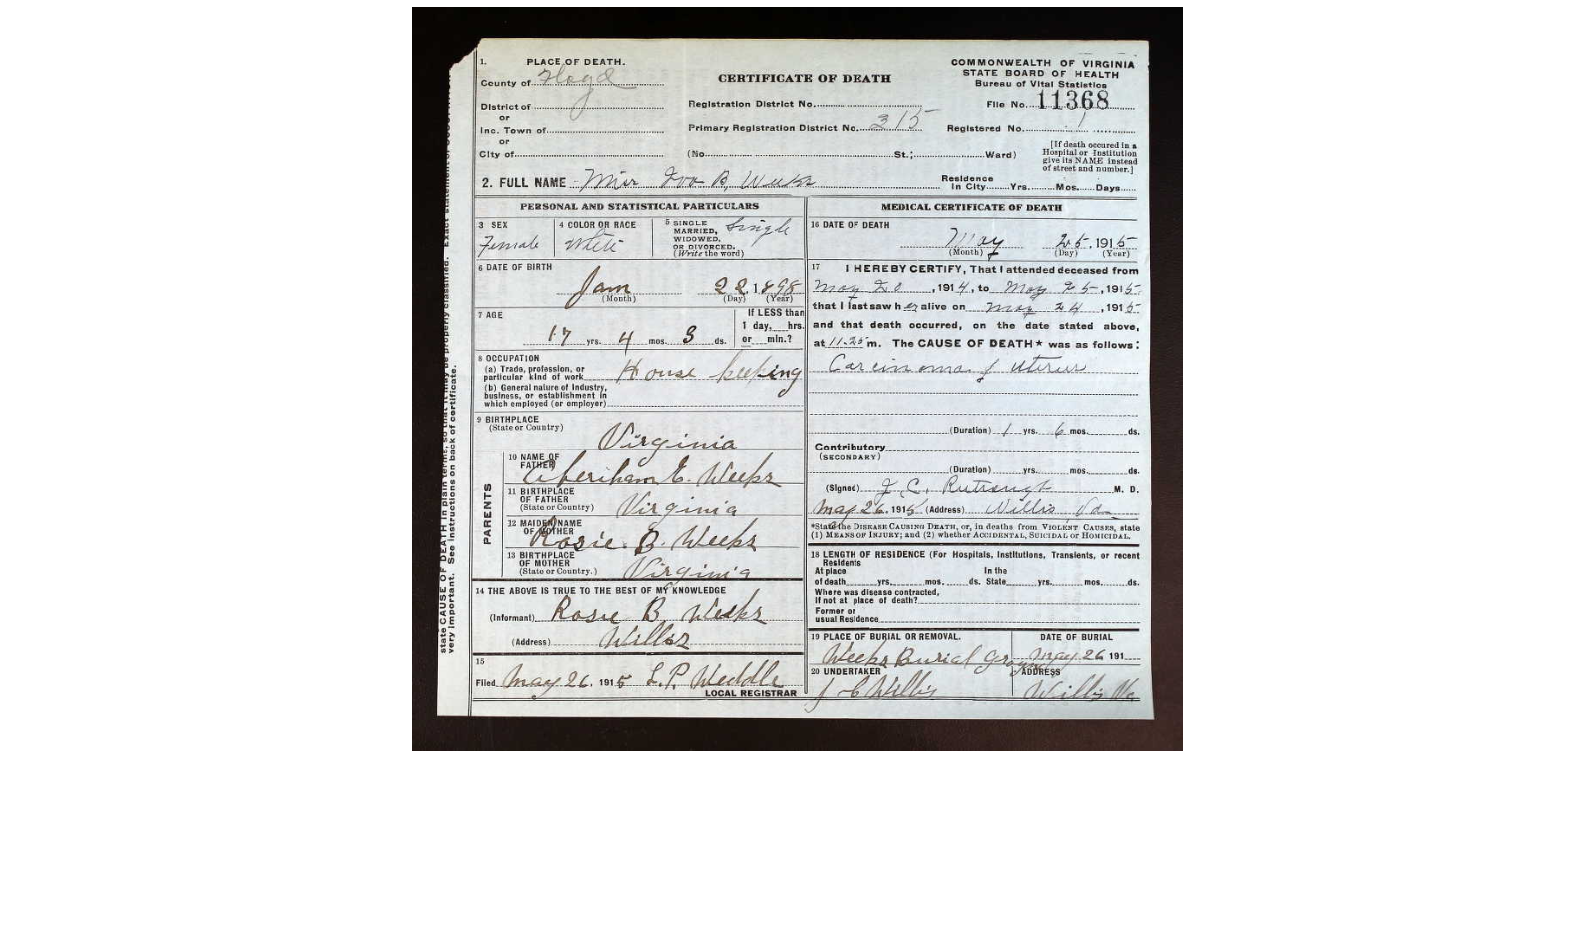 1. PLACE OF DEATH.
County of Floyd
District of
or
Inc. Town of
or
City of
CERTIFICATE OF DEATH
Registration District No.
Primary Registration District No. 315
(No. St.; Ward)
COMMONWEALTH OF VIRGINIA
STATE BOARD OF HEALTH
Bureau of Vital Statistics
File No. 11368
Registered No. 1
[If death occured in a
Hospital or Institution
give its NAME instead
of street and number.]
2. FULL NAME Miss B. Weeks
Residence
In City Yrs. Mos. Days
PERSONAL AND STATISTICAL PARTICULARS
3 SEX
Female
4 COLOR OR RACE
White
5 SINGLE
MARRIED,
WIDOWED,
OR DIVORCED.
(Write the word)
Single
6 DATE OF BIRTH
Jan 22, 1898
(Month) (Day) (Year)
7 AGE
17 yrs. 4 mos. 3 ds.
If LESS than
1 day, hrs.
or min.?
8 OCCUPATION
(a) Trade, profession, or
particular kind of work House keeping
(b) General nature of Industry,
business, or establishment in
which employed (or employer)
9 BIRTHPLACE
(State or Country)
Virginia
PARENTS
10 NAME OF
FATHER
E. Weeks
11 BIRTHPLACE
OF FATHER
(State or Country) Virginia
12 MAIDEN NAME
OF MOTHER
Rosie B. Weeks
13 BIRTHPLACE
OF MOTHER
(State or Country.) Virginia
14 THE ABOVE IS TRUE TO THE BEST OF MY KNOWLEDGE
(Informant) Rosie B. Weeks
(Address) Willis
15
Filed May 26, 1915 L. P. Weddle
LOCAL REGISTRAR
MEDICAL CERTIFICATE OF DEATH
16 DATE OF DEATH
May 25, 1915
(Month) (Day) (Year)
17 I HEREBY CERTIFY, That I attended deceased from
May 20, 1914, to May 25, 1915
that I last saw her alive on May 24, 1915
and that death occurred, on the date stated above,
at 11.25 m. The CAUSE OF DEATH* was as follows:
Carcinoma of Uterus
(Duration) 1 yrs. 6 mos. ds.
Contributory
(SECONDARY)
(Duration) yrs. mos. ds.
(Signed) J. C. M. D.
May 26, 1915 (Address) Willis, Va
*State the DISEASE CAUSING DEATH, or, in deaths from VIOLENT CAUSES, state
(1) MEANS OF INJURY; and (2) whether ACCIDENTAL, SUICIDAL or HOMICIDAL.
18 LENGTH OF RESIDENCE (For Hospitals, Institutions, Transients, or recent
Residents
At place In the
of death yrs. mos. ds. State yrs. mos. ds.
Where was disease contracted,
If not at place of death?
Former or
usual Residence
19 PLACE OF BURIAL OR REMOVAL.
Weeks Burial ground
DATE OF BURIAL
May 26 191
20 UNDERTAKER
J C Willis
ADDRESS
Willis Va
state CAUSE OF DEATH in plain terms, so that it may be properly classified. Exact statement
very important. See instructions on back of certificate.